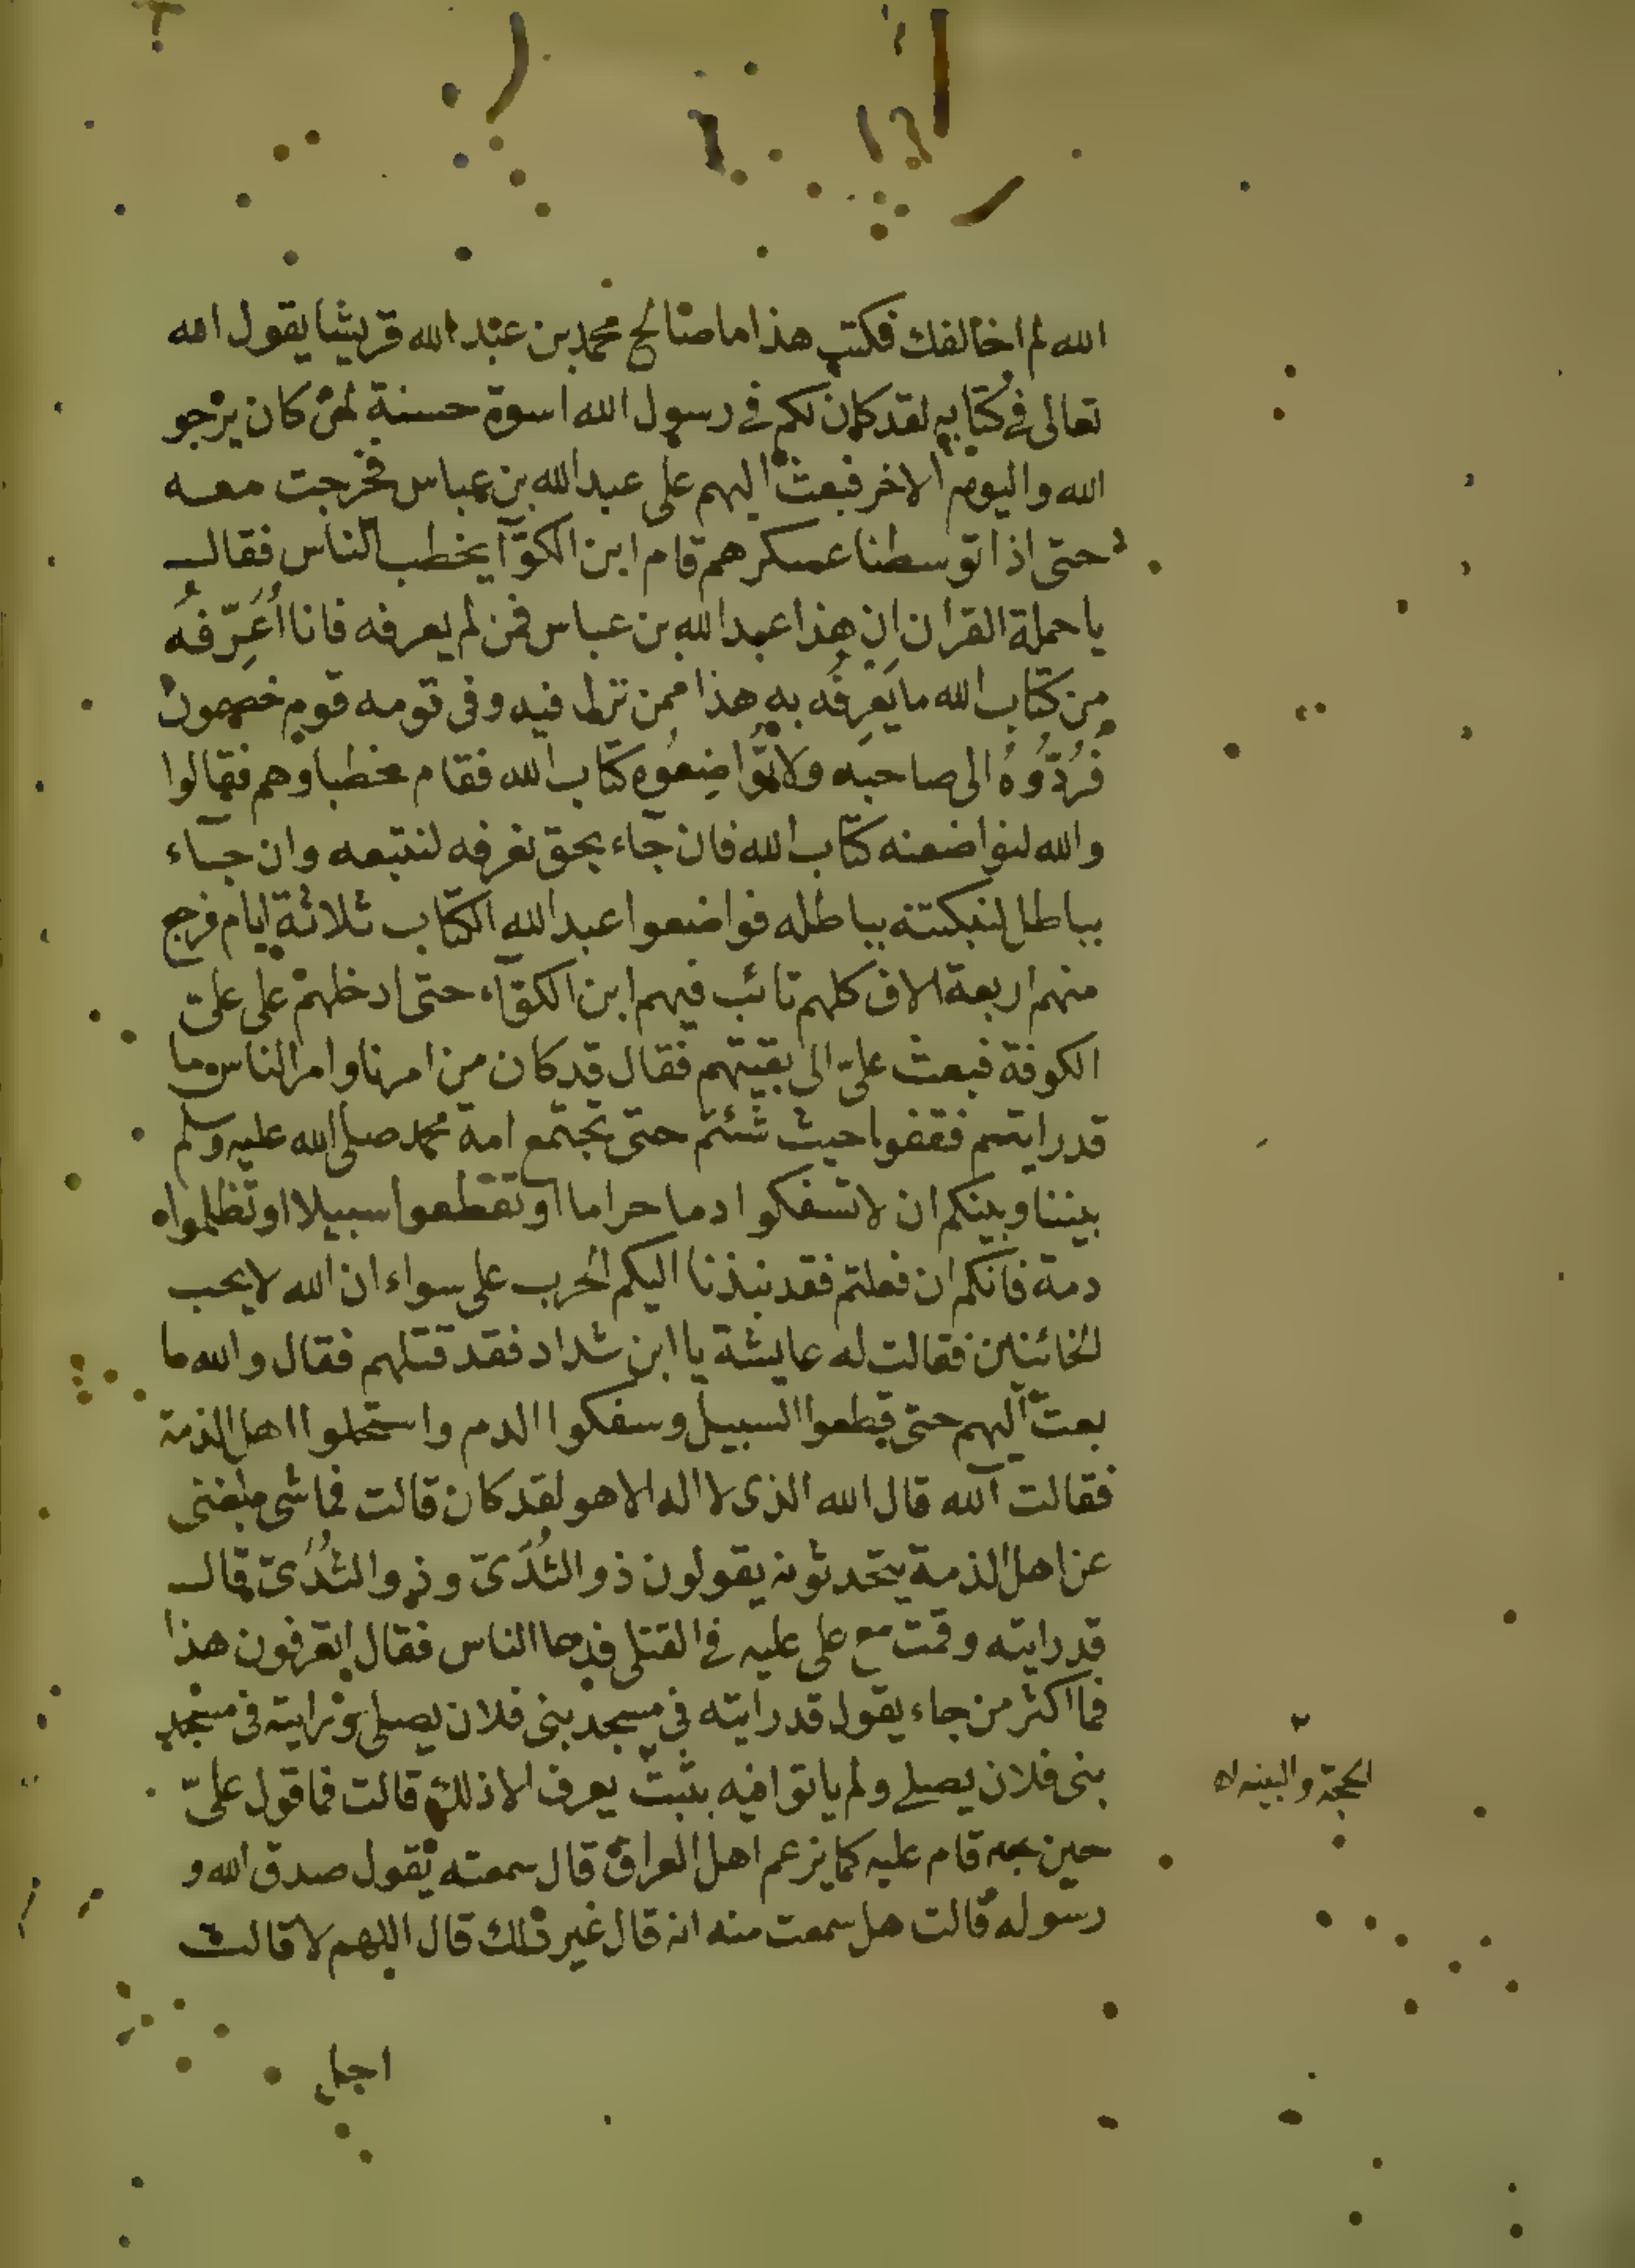 الله لم اخالفك فكتب هذا ما صالح محمد بن عبد الله قريشا يقول الله
تعالى في كتابه لقد كان لكم في رسول الله اسوة حسنة لمن كان يرجو
الله واليوم الاخر فبعث اليهم على عبد الله بن عباس فخرجت معه
حتى اذا توسطنا عسكرهم قام ابن الكوّآ يخطب الناس فقال
يا حملة القران ان هذا عبد الله بن عباس فمن لم يعرفه فانا أُعَرِّفُه
من كتاب الله ما يَعرِفُه به هذا ممن نزل فيه وفى قومه قوم خصمون
فَرُدُّوُهُ الى صاحبه ولا تُواضِعُوه كتاب الله فقام خطباوهم فقالوا
والله لنواضعنه كتاب الله فان جاء بحق نعرفه لنتبعه وان جاء
بباطل لنبكتنه بباطله فواضعوا عبد الله الكتاب ثلاثة ايام فرجع
منهم اربعة الاف كلهم تائب فيهم ابن الكوّآء حتى ادخلهم على علىّ
الكوفة فبعث علىّ الى بقيتهم فقال قد كان من امرنا وامر الناس ما
قد رايتم فقفوا حيث شئتم حتى تجتمع امة محمد صلى الله عليه وسلم
بيننا وبينكم ان لا تسفكوا دما حراما او تقطعوا سبيلا او تظلموا
دمة فانكم ان فعلتم فقد نبذنا اليكم الحرب على سواء ان الله لا يحب
الخائنين فقالت له عايشة يا ابن شداد فقد قتلهم فقال والله ما
بعث اليهم حتى قطعوا السبيل وسفكوا الدم واستحلوا اهل الذمة
فقالت آلله قال الله الذى لا اله الا هو لقد كان قالت فما شى بلغنى
عن اهل الذمة يتحدثونه يقولون ذو الثُّدَىّ وذو الثُّدَىّ قال
قد رايته وقمت مع على عليه في القتلى فدعا الناس فقال اتعرفون هذا
فما اكثر من جاء يقول قد رايته في مسجد بنى فلان يصلى ورايته فى مسجد
بنى فلان يصلي ولم ياتوا فيه بثبت يعرف الا ذلك قالت فما قول علىّ
حين قام عليه كما يزعم اهل العراق قال سمعته يقول صدق الله و
رسوله قالت هل سمعت منه انه قال غير ذلك قال اللهم لا قالت
اجل
الحجة والبينه